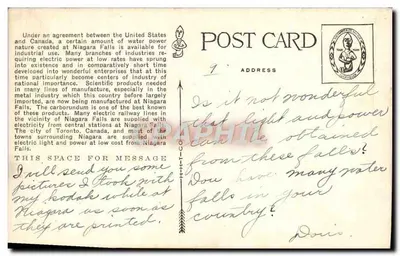 Under an agreement between the United States
and Canada, a certain amount of water power
nature created at Niagara Falls is available for
industrial use. Many branches of industries re-
quiring electric power at low rates have sprung
into existence and in comparatively short time
developed into wonderful enterprises that at this
time particularly become centers of industry of
national importance. Scientific products needed
in many lines of manufacture, especially in the
metal industry which this country before largely
imported, are now being manufactured at Niagara
Falls. The carborundum is one of the best known
of these products. Many electric railway lines in
the vicinity of Niagara Falls are supplied with
electricity from central stations at Niagara Falls.
The city of Toronto, Canada, and most of the
towns surrounding Niagara are supplied with
electric light and power at low cost from Niagara
Falls.
THIS SPACE FOR MESSAGE
I will send you some
pictures I took with
my kodak while at
Niagara as soon as
they are printed.
POST CARD
ADDRESS
Is it not wonderful
that light and power
can be obtained
from these falls?
Do you have many water
falls in your
country?
Doris.